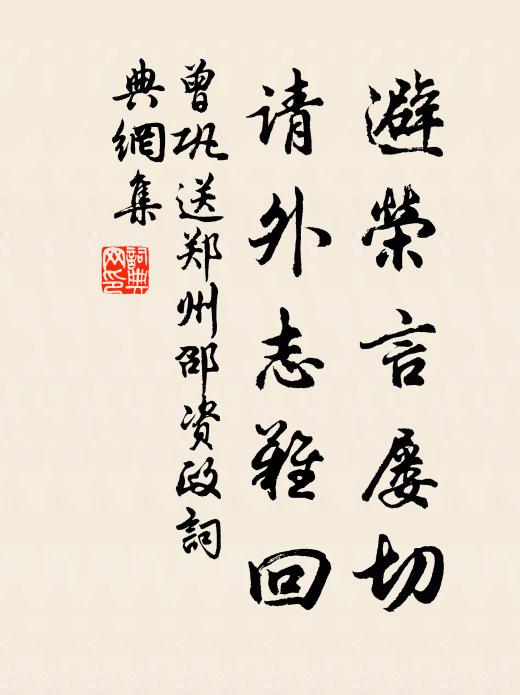 避榮言屡切
请外志難回
曾巩送郑州邵资政詞
典網集
詞典
网印